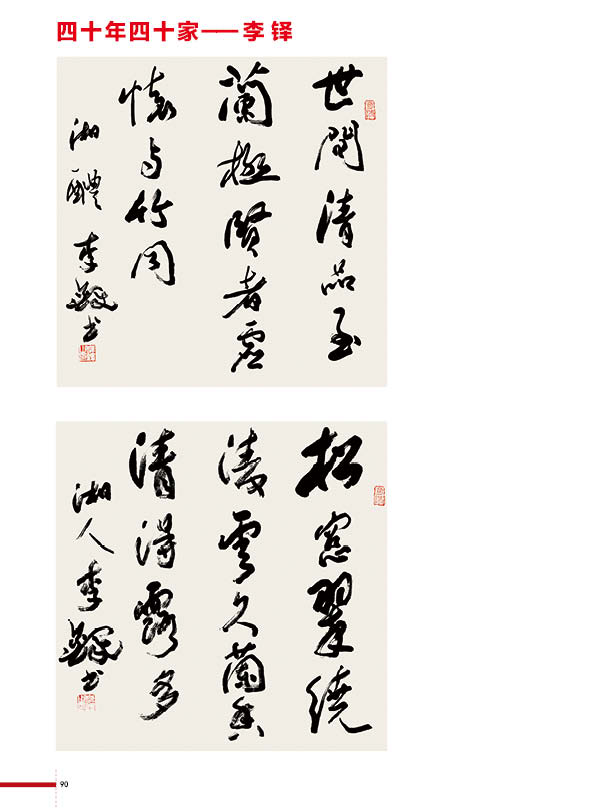 四十年四十家——李铎
世間清品至
蘭極賢者虛
懷与竹同
湘醴李鐸书
松窗翠繞
淩雲久蘭香
清得露多
湘人李鐸书
90